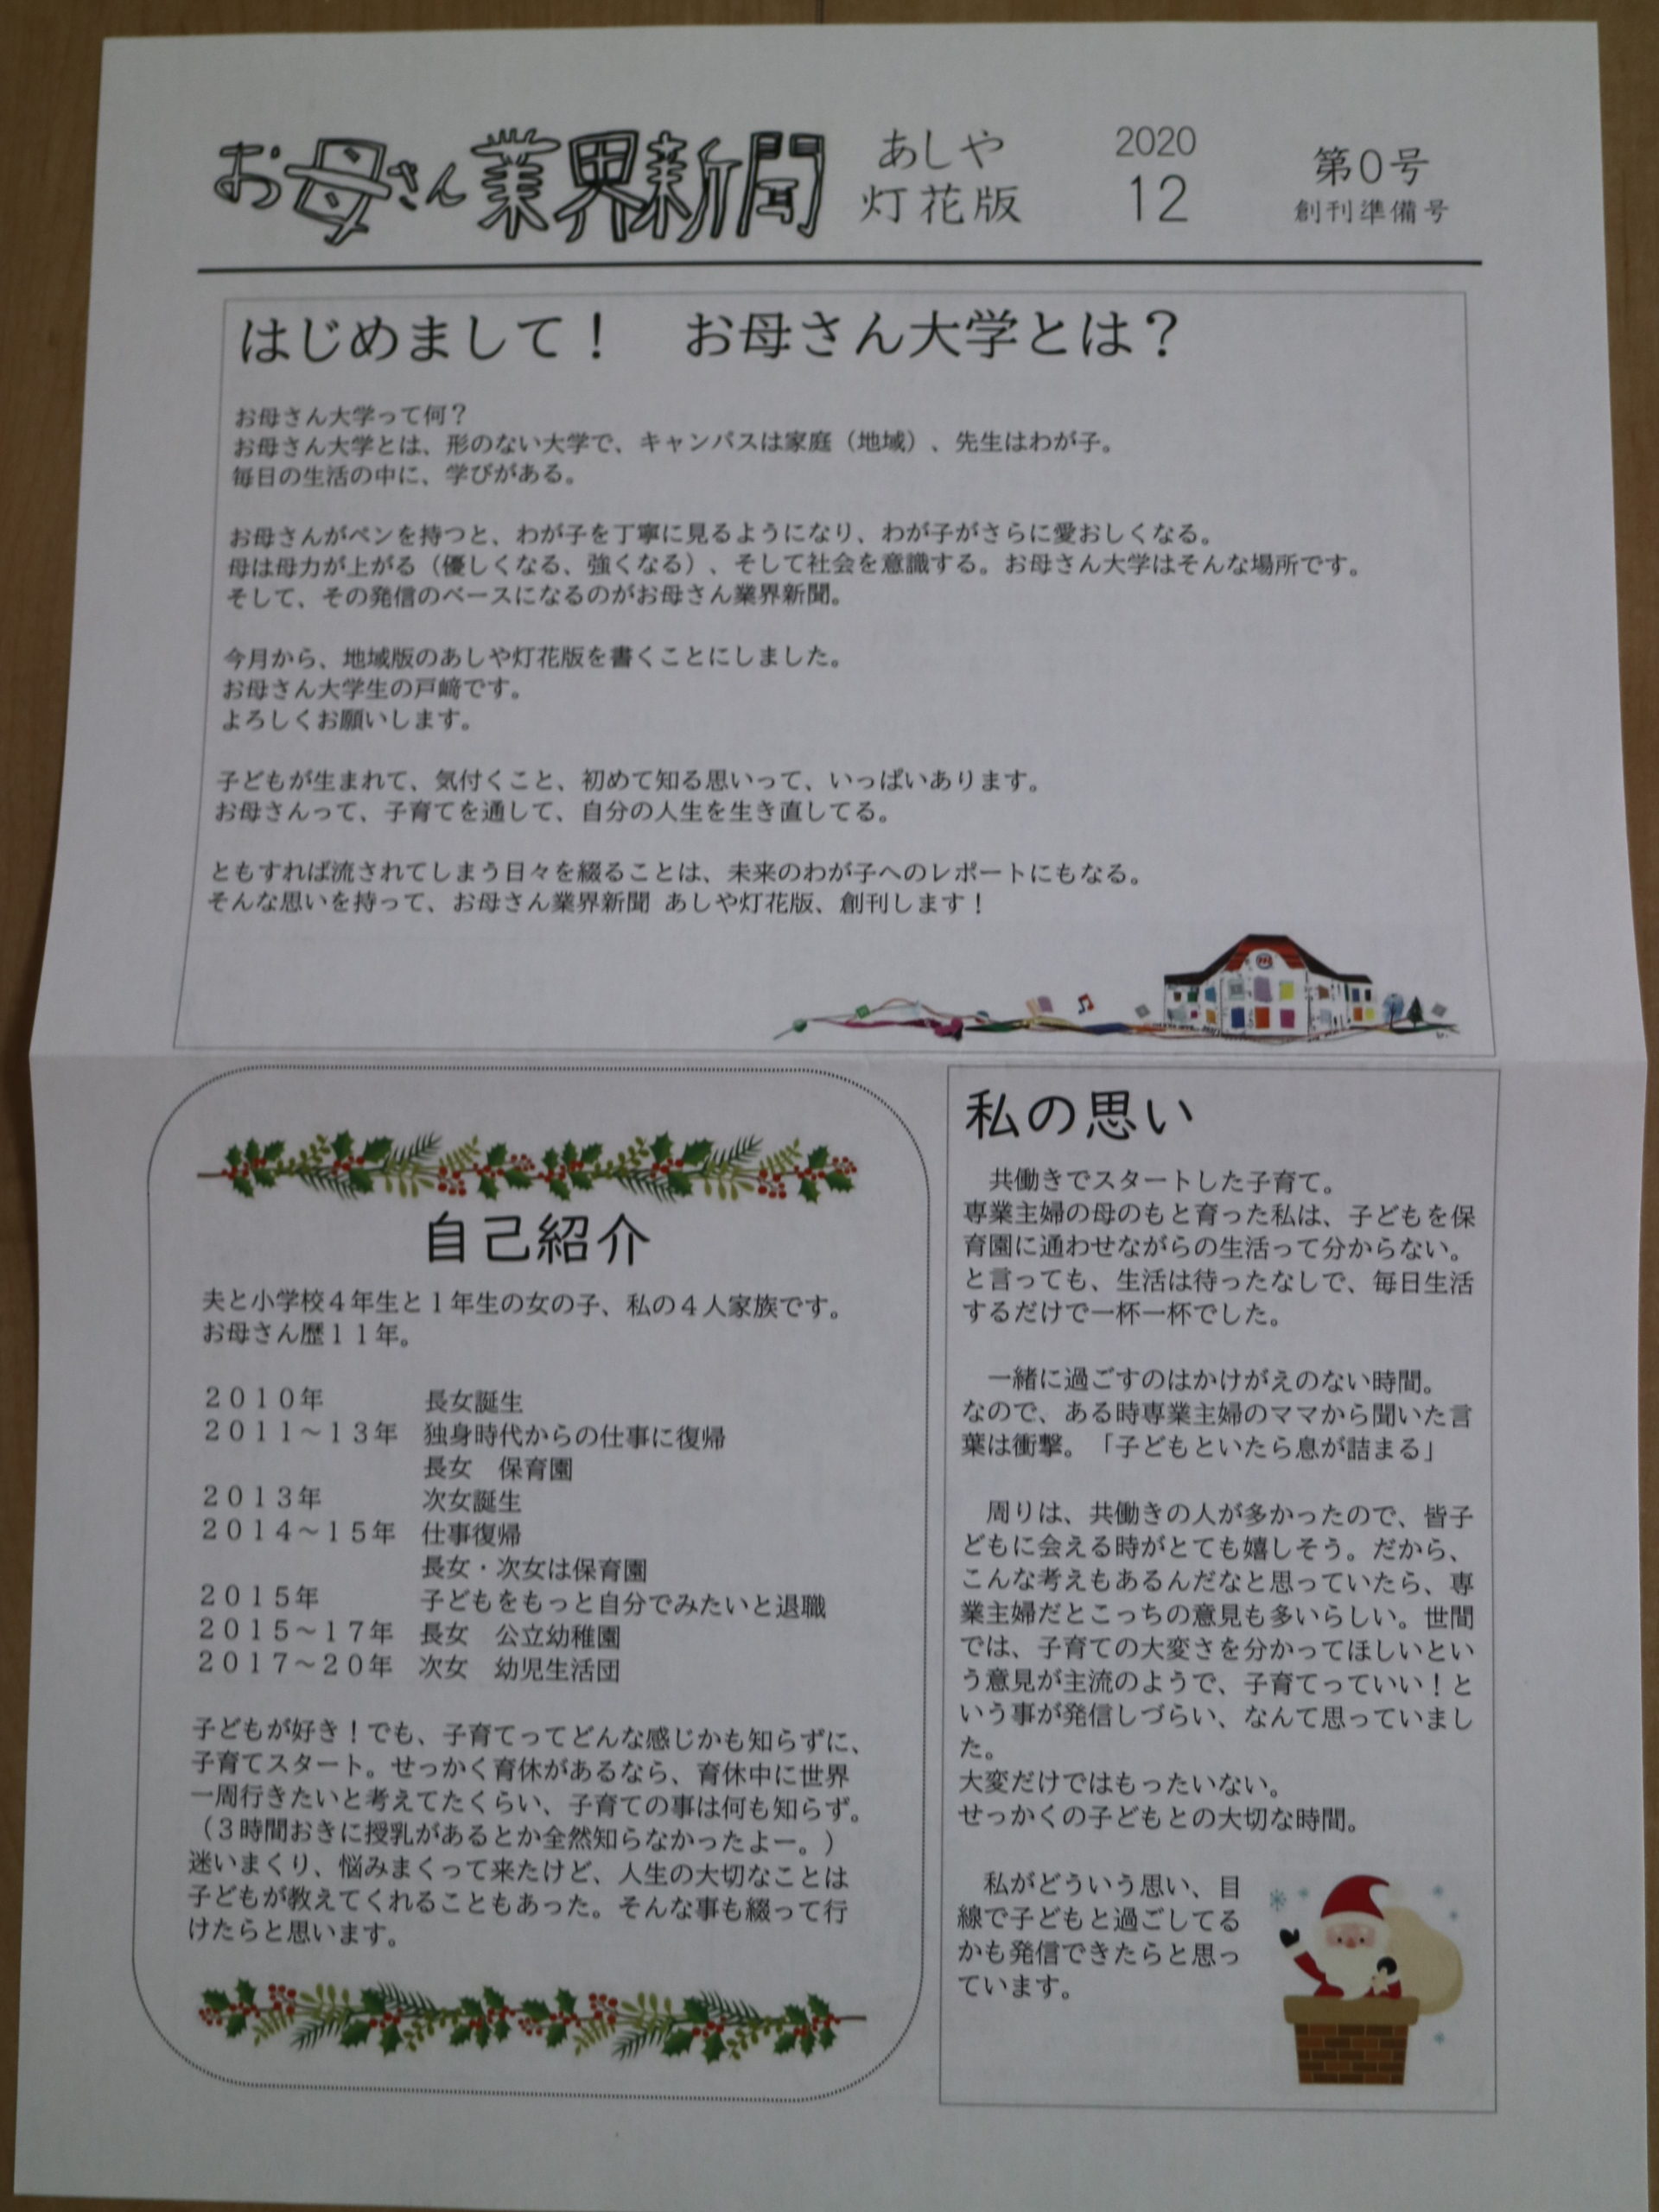 お母さん業界新聞
あしや
灯花版
2020
12
第0号
創刊準備号
はじめまして！　お母さん大学とは？
お母さん大学って何？
お母さん大学とは、形のない大学で、キャンパスは家庭（地域）、先生はわが子。
毎日の生活の中に、学びがある。
お母さんがペンを持つと、わが子を丁寧に見るようになり、わが子がさらに愛おしくなる。
母は母力が上がる（優しくなる、強くなる）、そして社会を意識する。お母さん大学はそんな場所です。
そして、その発信のベースになるのがお母さん業界新聞。
今月から、地域版のあしや灯花版を書くことにしました。
お母さん大学生の戸﨑です。
よろしくお願いします。
子どもが生まれて、気付くこと、初めて知る思いって、いっぱいあります。
お母さんって、子育てを通して、自分の人生を生き直してる。
ともすれば流されてしまう日々を綴ることは、未来のわが子へのレポートにもなる。
そんな思いを持って、お母さん業界新聞 あしや灯花版、創刊します！
自己紹介
夫と小学校４年生と１年生の女の子、私の４人家族です。
お母さん歴１１年。
２０１０年　長女誕生
２０１１～１３年　独身時代からの仕事に復帰
長女　保育園
２０１３年　次女誕生
２０１４～１５年　仕事復帰
長女・次女は保育園
２０１５年　子どもをもっと自分でみたいと退職
２０１５～１７年　長女　公立幼稚園
２０１７～２０年　次女　幼児生活団
子どもが好き！でも、子育てってどんな感じかも知らずに、
子育てスタート。せっかく育休があるなら、育休中に世界
一周行きたいと考えてたくらい、子育ての事は何も知らず。
（３時間おきに授乳があるとか全然知らなかったよー。）
迷いまくり、悩みまくって来たけど、人生の大切なことは
子どもが教えてくれることもあった。そんな事も綴って行
けたらと思います。
私の思い
共働きでスタートした子育て。
専業主婦の母のもと育った私は、子どもを保
育園に通わせながらの生活って分からない。
と言っても、生活は待ったなしで、毎日生活
するだけで一杯一杯でした。
一緒に過ごすのはかけがえのない時間。
なので、ある時専業主婦のママから聞いた言
葉は衝撃。「子どもといたら息が詰まる」
周りは、共働きの人が多かったので、皆子
どもに会える時がとても嬉しそう。だから、
こんな考えもあるんだなと思っていたら、専
業主婦だとこっちの意見も多いらしい。世間
では、子育ての大変さを分かってほしいとい
う意見が主流のようで、子育てっていい！と
いう事が発信しづらい、なんて思っていまし
た。
大変だけではもったいない。
せっかくの子どもとの大切な時間。
私がどういう思い、目
線で子どもと過ごしてる
かも発信できたらと思っ
ています。